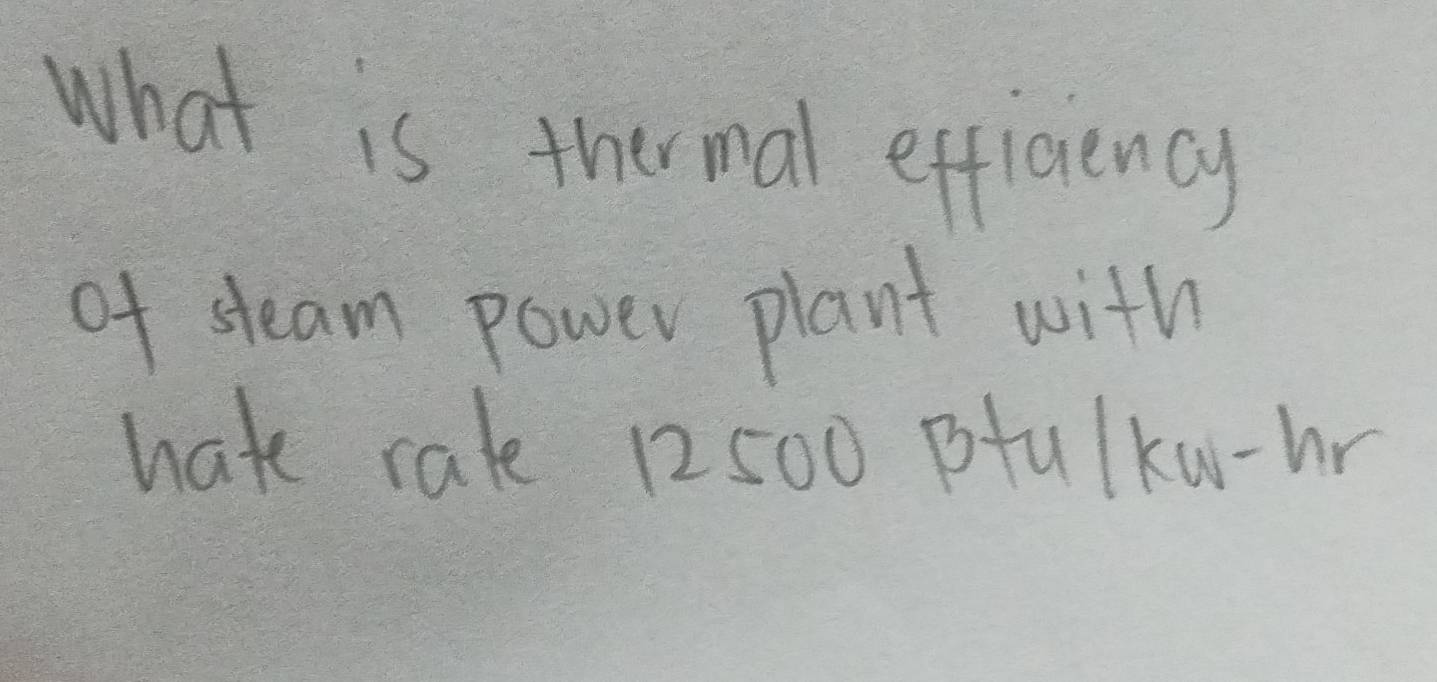 What is thermal efficiency
of steam power plant with
hate rate 12500 Btu/kw-hr